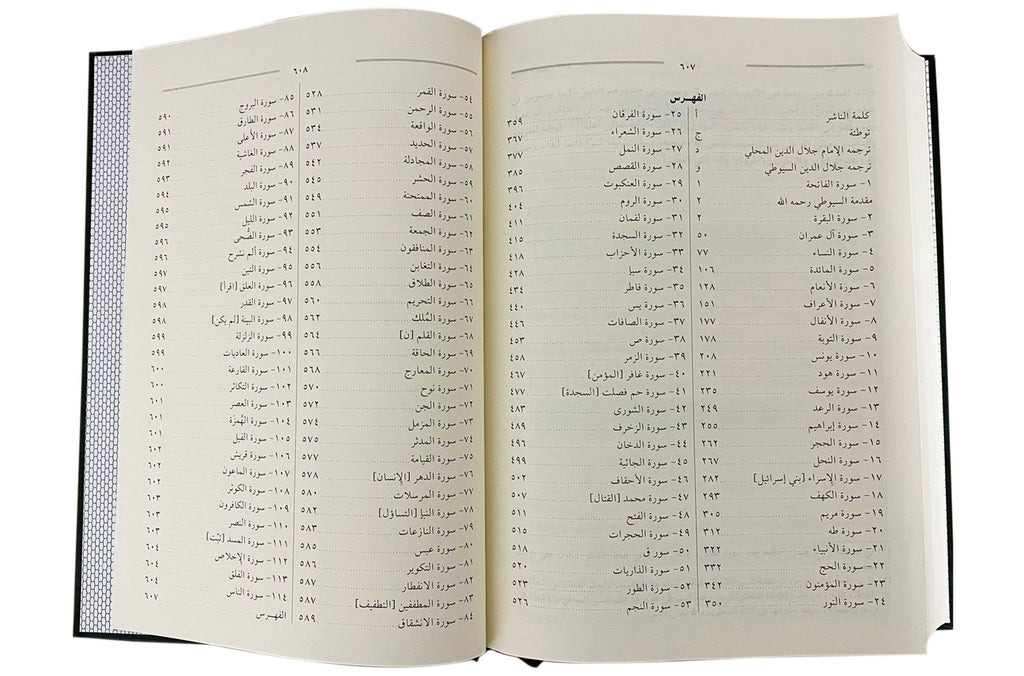 ٦٠٧
الفهرس
كلمة الناشر أ
توطئة ج
ترجمه الإمام جلال الدين المحلي د
ترجمه جلال الدين السيوطي و
١- سورة الفاتحة ١
مقدمة السيوطي رحمه الله ٢
٢- سورة البقرة ٢
٣- سورة آل عمران ٥٠
٤- سورة النساء ٧٧
٥- سورة المائدة ١٠٦
٦- سورة الأنعام ١٢٨
٧- سورة الأعراف ١٥١
٨- سورة الأنفال ١٧٧
٩- سورة التوبة ١٧٨
١٠- سورة يونس ٢٠٨
١١- سورة هود ٢٢١
١٢- سورة يوسف ٢٣٥
١٣- سورة الرعد ٢٤٩
١٤- سورة إبراهيم ٢٥٥
١٥- سورة الحجر ٢٦٢
١٦- سورة النحل ٢٦٧
١٧- سورة الإسراء [بني إسرائيل] ٢٨٢
١٨- سورة الكهف ٢٩٣
١٩- سورة مريم ٣٠٥
٢٠- سورة طه ٣١٢
٢١- سورة الأنبياء ٣٢٢
٢٢- سورة الحج ٣٣٢
٢٣- سورة المؤمنون ٣٤٢
٢٤- سورة النور ٣٥٠
٢٥- سورة الفرقان ٣٥٩
٢٦- سورة الشعراء ٣٦٧
٢٧- سورة النمل ٣٧٧
٢٨- سورة القصص ٣٨٥
٢٩- سورة العنكبوت ٣٩٦
٣٠- سورة الروم ٤٠٤
٣١- سورة لقمان ٤١١
٣٢- سورة السجدة ٤١٥
٣٣- سورة الأحزاب ٤١٨
٣٤- سورة سبإ ٤٢٨
٣٥- سورة فاطر ٤٣٤
٣٦- سورة يس ٤٤٠
٣٧- سورة الصافات ٤٤٦
٣٨- سورة ص ٤٥٣
٣٩- سورة الزمر ٤٥٨
٤٠- سورة غافر [المؤمن] ٤٦٧
٤١- سورة حم فصلت [السجدة] ٤٧٧
٤٢- سورة الشورى ٤٨٣
٤٣- سورة الزخرف ٤٨٩
٤٤- سورة الدخان ٤٩٦
٤٥- سورة الجاثية ٤٩٩
٤٦- سورة الأحقاف ٥٠٢
٤٧- سورة محمد [القتال] ٥٠٧
٤٨- سورة الفتح ٥١١
٤٩- سورة الحجرات ٥١٥
٥٠- سور ق ٥١٨
٥١- سورة الذاريات ٥٢٠
٥٢- سورة الطور ٥٢٣
٥٣- سورة النجم ٥٢٦
٦٠٨
٥٤- سورة القمر ٥٢٨
٥٥- سورة الرحمن ٥٣١
٥٦- سورة الواقعة ٥٣٤
٥٧- سورة الحديد ٥٣٧
٥٨- سورة المجادلة ٥٤٢
٥٩- سورة الحشر ٥٤٥
٦٠- سورة الممتحنة ٥٤٩
٦١- سورة الصف ٥٥١
٦٢- سورة الجمعة ٥٥٣
٦٣- سورة المنافقون ٥٥٤
٦٤- سورة التغابن ٥٥٦
٦٥- سورة الطلاق ٥٥٨
٦٦- سورة التحريم ٥٦٠
٦٧- سورة المُلك ٥٦٢
٦٨- سورة القلم [ن] ٥٦٤
٦٩- سورة الحاقة ٥٦٦
٧٠- سورة المعارج ٥٦٨
٧١- سورة نوح ٥٧٠
٧٢- سورة الجن ٥٧٢
٧٣- سورة المزمل ٥٧٤
٧٤- سورة المدثر ٥٧٥
٧٥- سورة القيامة ٥٧٧
٧٦- سورة الدهر [الإنسان] ٥٧٨
٧٧- سورة المرسلات ٥٨٠
٧٨- سورة النبإ [التساؤل] ٥٨٢
٧٩- سورة النازعات ٥٨٣
٨٠- سورة عبس ٥٨٥
٨١- سورة التكوير ٥٨٦
٨٢- سورة الانفطار ٥٨٧
٨٣- سورة المطففين [التطفيف] ٥٨٧
٨٤- سورة الانشقاق ٥٨٩
٨٥- سورة البروج ٥٩٠
٨٦- سورة الطارق ٥٩١
٨٧- سورة الأعلى ٥٩١
٨٨- سورة الغاشية ٥٩٢
٨٩- سورة الفجر ٥٩٣
٩٠- سورة البلد ٥٩٤
٩١- سورة الشمس ٥٩٥
٩٢- سورة الليل ٥٩٥
٩٣- سورة الضُّحى ٥٩٦
٩٤- سورة ألم نشرح ٥٩٦
٩٥- سورة التين
٩٦- سورة العلق [اقرأ] ٥٩٧
٩٧- سورة القدر ٥٩٨
٩٨- سورة البينة [لم يكن] ٥٩٨
٩٩- سورة الزلزلة ٥٩٩
١٠٠- سورة العاديات ٥٩٩
١٠١- سورة القارعة ٦٠٠
١٠٢- سورة التكاثر ٦٠٠
١٠٣- سورة العصر ٦٠١
١٠٤- سورة الهُمَزة ٦٠١
١٠٥- سورة الفيل ٦٠١
١٠٦- سورة قريش ٦٠٢
١٠٧- سورة الماعون ٦٠٢
١٠٨- سورة الكوثر
١٠٩- سورة الكافرون ٦٠٣
١١٠- سورة النصر ٦٠٣
١١١- سورة المسد [تبّت]
١١٢- سورة الإخلاص ٦٠٤
١١٣- سورة الفلق ٦٠٤
١١٤- سورة الناس ٦٠٤
الفهرس ٦٠٧